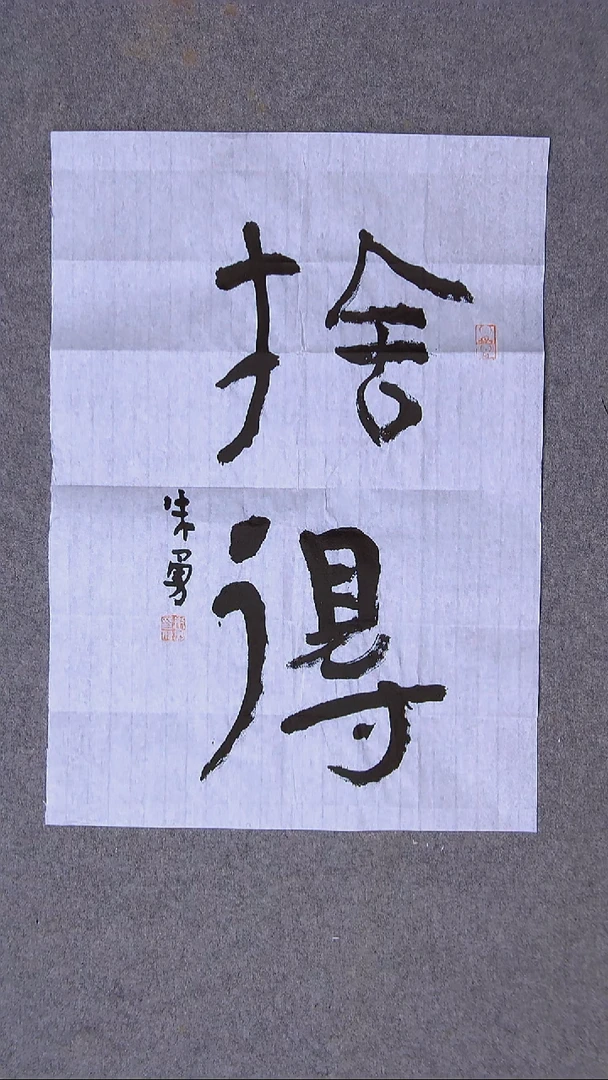 捨得
朱勇